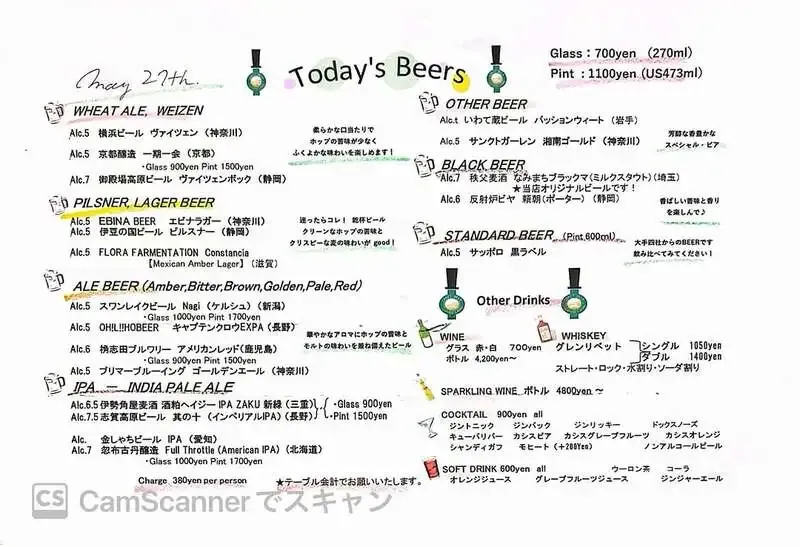 May 27th.
Today's Beers
Glass：700yen （270ml）
Pint ：1100yen（US473ml）
WHEAT ALE, WEIZEN
Alc.5 横浜ビール ヴァイツェン（神奈川）
Alc.5 京都醸造 一期一会（京都）
・Glass 900yen Pint 1500yen
Alc.7 御殿場高原ビール ヴァイツェンボック（静岡）
柔らかな口当たりで
ホップの苦味が少なく
ふくよかな味わいを楽しめます！
PILSNER, LAGER BEER
Alc.5 EBINA BEER エビナラガー（神奈川）
Alc.5 伊豆の国ビール ピルスナー（静岡）
Alc.5 FLORA FARMENTATION Constancia
【Mexican Amber Lager】（滋賀）
迷ったらコレ！ 乾杯ビール
クリーンなホップの苦味と
クリスピーな麦の味わいが good！
ALE BEER（Amber,Bitter,Brown,Golden,Pale,Red）
Alc.5 スワンレイクビール Nagi（ケルシュ）（新潟）
・Glass 1000yen Pint 1700yen
Alc.5 OH!L!!HOBEER キャプテンクロウEXPA（長野）
Alc.6 桷志田ブルワリー アメリカンレッド（鹿児島）
・Glass 900yen Pint 1500yen
Alc.5 ブリマーブルーイング ゴールデンエール（神奈川）
華やかなアロマにホップの苦味と
モルトの味わいを兼ね備えたビール
IPA － INDIA PALE ALE
Alc.6.5 伊勢角屋麦酒 酒粕ヘイジーIPA ZAKU 新緑（三重）
Alc.7.5 志賀高原ビール 其の十（インペリアルIPA）（長野）
・Glass 900yen
・Pint 1500yen
Alc. 金しゃちビール IPA（愛知）
Alc.7 忽布古丹醸造 Full Throttle（American IPA）（北海道）
・Glass 1000yen Pint 1700yen
Charge 380yen per person ★テーブル会計でお願いいたします。
OTHER BEER
Alc.t いわて蔵ビール パッションウィート（岩手）
Alc.5 サンクトガーレン 湘南ゴールド（神奈川）
芳醇な香豊かな
スペシャル・ビア
BLACK BEER
Alc.7 秩父麦酒 なみまちブラックマ（ミルクスタウト）（埼玉）
★当店オリジナルビールです！
Alc.6 反射炉ビヤ 頼朝（ポーター）（静岡）
香ばしい苦味と香り
を楽しんで♪
STANDARD BEER （Pint,600ml）
Alc.5 サッポロ 黒ラベル
大手四社からのBEERです
飲み比べてみてください！
Other Drinks
WINE
グラス 赤・白 700yen
ボトル 4,200yen～
WHISKEY
グレンリベット
シングル 1050yen
ダブル 1400yen
ストレート・ロック・水割り・ソーダ割り
SPARKLING WINE ボトル 4800yen～
COCKTAIL 900yen all
ジントニック ジンバック ジンリッキー ドックスノーズ
キューバリバー カシスビア カシスグレープフルーツ カシスオレンジ
シャンディガフ モヒート（＋200Yen） ノンアルコールビール
SOFT DRINK 600yen all ウーロン茶 コーラ
オレンジジュース グレープフルーツジュース ジンジャーエール
CS CamScanner でスキャン